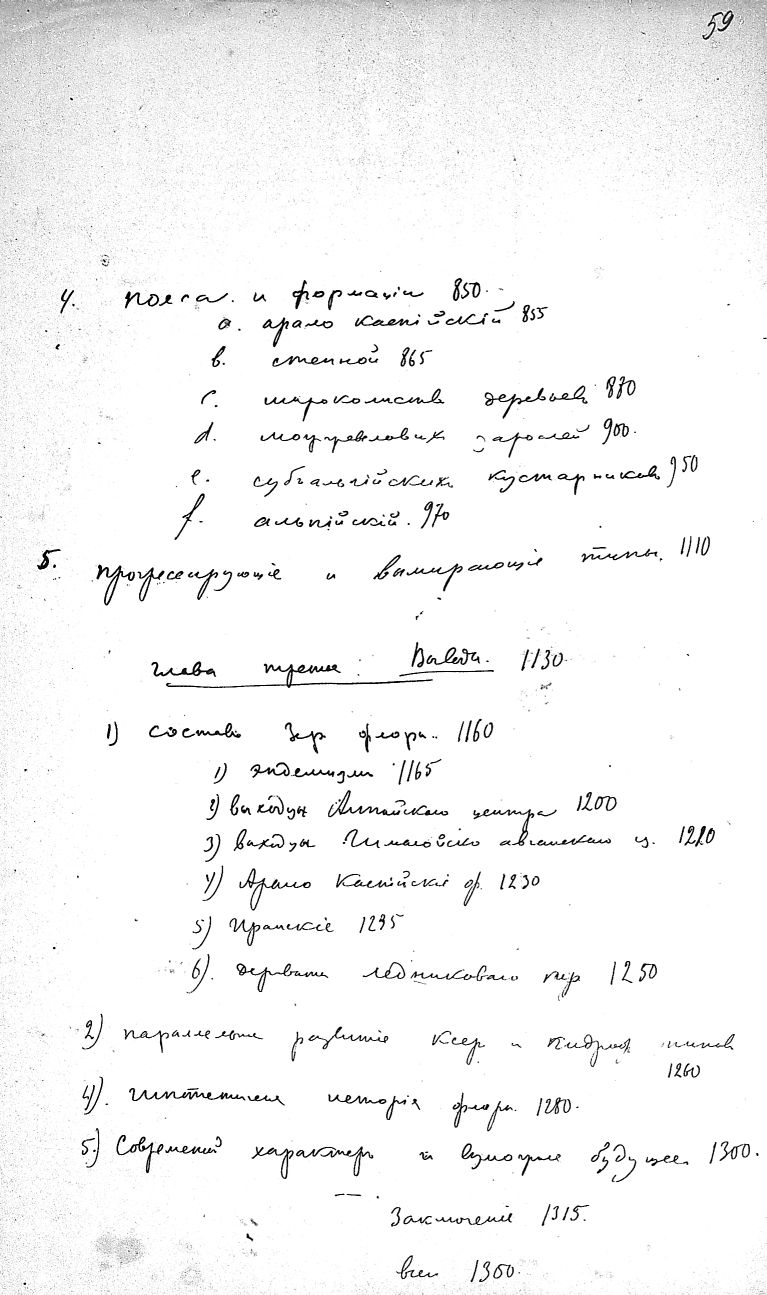 59
4. пояса и формаціи 850.
a. арало каспійскій 855
b. степной 865
c. широколиств деревьевъ 880
d. зарослей 900.
e. субальпійскихъ кустарниковъ 950
f. альпійскій. 970
5. прогрессирующіе и вымирающіе типы. 1110
Глава третья: Выводы. 1130
1) составъ Зер флоры. 1160
1) эндемизмъ 1165
2) выходцы Алтайскаго центра 1200
3) выходцы Гималайско авганскаго ц. 1220
4) Арало Каспійскіе ф. 1230
5) Иранскіе 1235
6). дериваты ледниковаго пер 1250
2) параллельное развитіе ксер и гидроф типов
1260
4). гипотетическая исторія флоры. 1280.
5.) Современный характеръ и будущее 1300.
Заключеніе 1315.
1300.